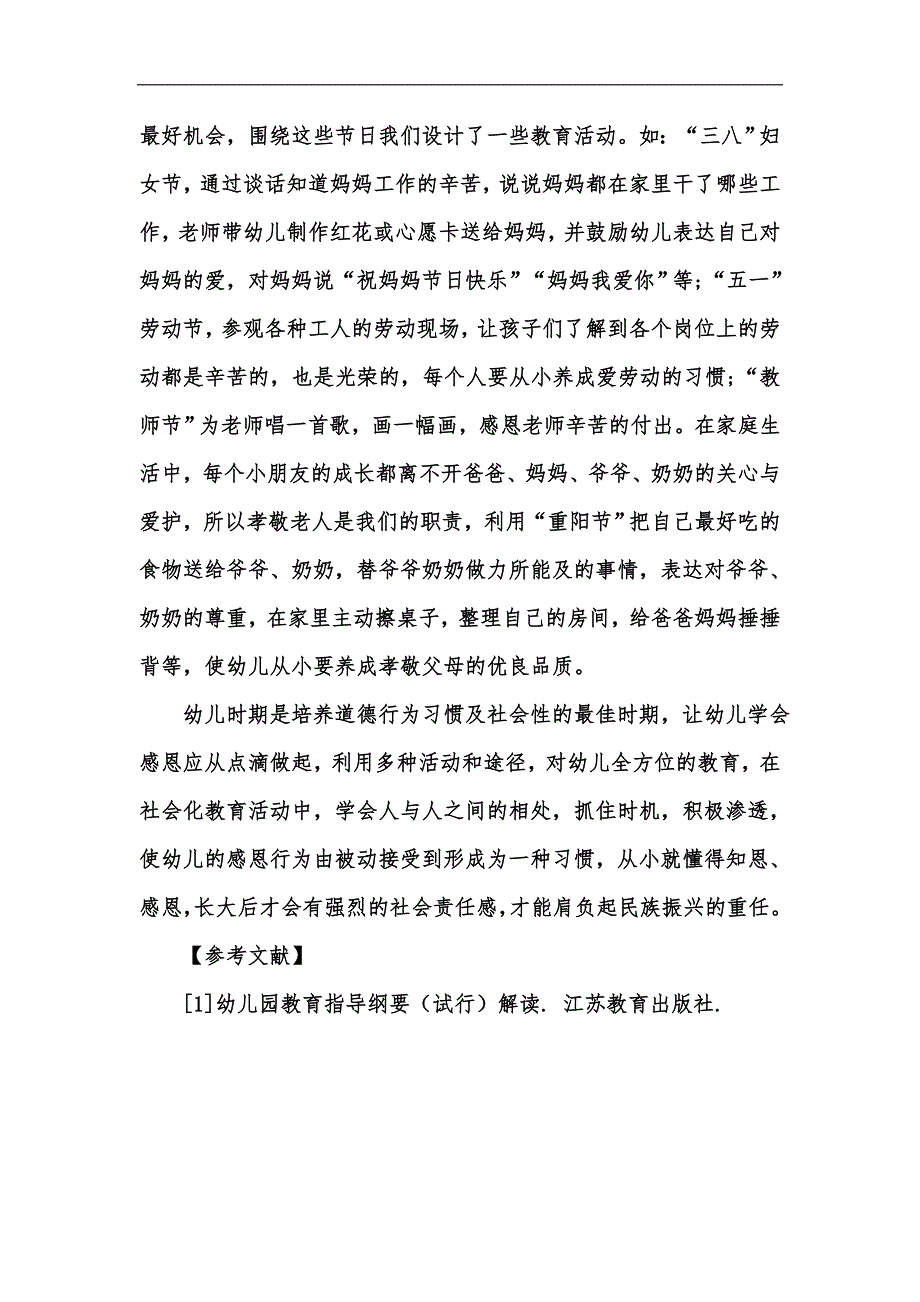 最好机会，围绕这些节日我们设计了一些教育活动。如：“三八”妇
女节，通过谈话知道妈妈工作的辛苦，说说妈妈都在家里干了哪些工
作，老师带幼儿制作红花或心愿卡送给妈妈，并鼓励幼儿表达自己对
妈妈的爱，对妈妈说“祝妈妈节日快乐”“妈妈我爱你”等；“五一”
劳动节，参观各种工人的劳动现场，让孩子们了解到各个岗位上的劳
动都是辛苦的，也是光荣的，每个人要从小养成爱劳动的习惯；“教
师节”为老师唱一首歌，画一幅画，感恩老师辛苦的付出。在家庭生
活中，每个小朋友的成长都离不开爸爸、妈妈、爷爷、奶奶的关心与
爱护，所以孝敬老人是我们的职责，利用“重阳节”把自己最好吃的
食物送给爷爷、奶奶，替爷爷奶奶做力所能及的事情，表达对爷爷、
奶奶的尊重，在家里主动擦桌子，整理自己的房间，给爸爸妈妈捶捶
背等，使幼儿从小要养成孝敬父母的优良品质。
幼儿时期是培养道德行为习惯及社会性的最佳时期，让幼儿学会
感恩应从点滴做起，利用多种活动和途径，对幼儿全方位的教育，在
社会化教育活动中，学会人与人之间的相处，抓住时机，积极渗透，
使幼儿的感恩行为由被动接受到形成为一种习惯，从小就懂得知恩、
感恩，长大后才会有强烈的社会责任感，才能肩负起民族振兴的重任。
【参考文献】
[1]幼儿园教育指导纲要（试行）解读. 江苏教育出版社.